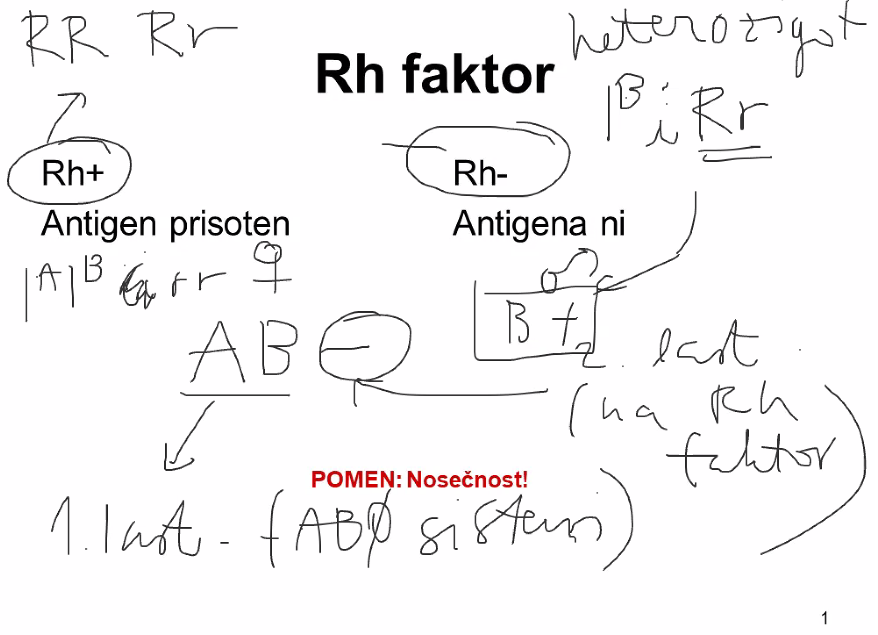 RR Rr
heterozigot
Rh faktor
I^B i Rr
Rh+
Rh-
Antigen prisoten
Antigena ni
I^A I^B rr ♀
♂
AB -
B +
2. last
(na Rh
faktor)
POMEN: Nosečnost!
1. last - (ABØ sistem)
1